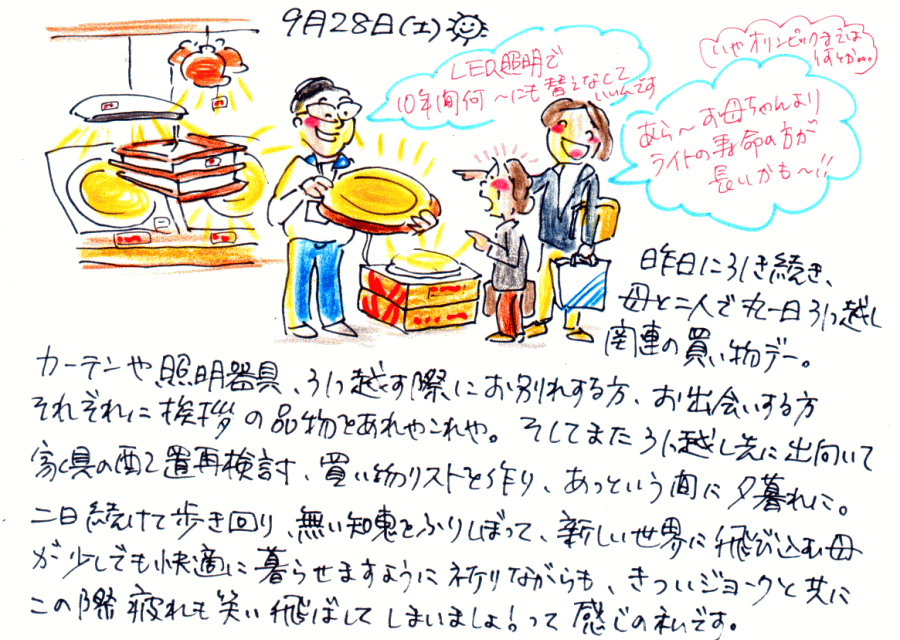 9月28日(土)
LED照明で
10年間何〜にも替えなくて
いいんです
いやオリンピックまでは
あら〜お母ちゃんより
ライトの寿命の方が
長いかも〜!!
昨日に引き続き、
母と二人で丸一日引っ越し
関連の買い物デー。
カーテンや照明器具、引っ越す際にお別れする方、お出会いする方
それぞれに挨拶の品物をあれやこれや。そしてまた引っ越し先に出向いて
家具の配置再検討、買い物リストを作り、あっという間に夕暮れに。
二日続けて歩き回り、無い知恵をふりしぼって、新しい世界に飛び込む母
が少しでも快適に暮らせますように祈りながらも、きついジョークと共に
この際疲れも笑い飛ばしてしまいましょ!って感じの私です。